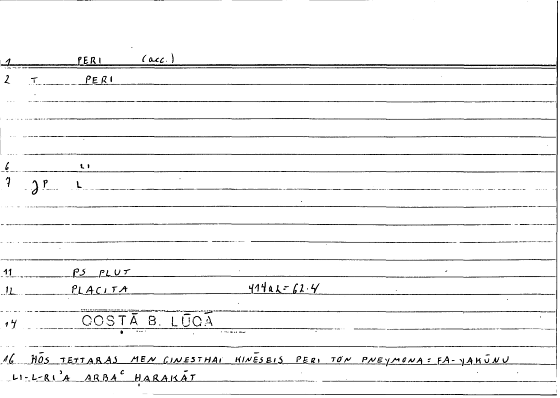 1 PERI (acc.)
2 T PERI
6 LI
7 JP L
11 PS PLUT
12 PLACITA 414a2=62.4
14 QOSṬĀ B. LŪQĀ
16 HŌS TETTARAS MEN GINESTHAI KINĒSEIS PERI TON PNEYMONA = FA-YAKŪNU
LI-L-RIʾA ARBAʿ ḤARAKĀT